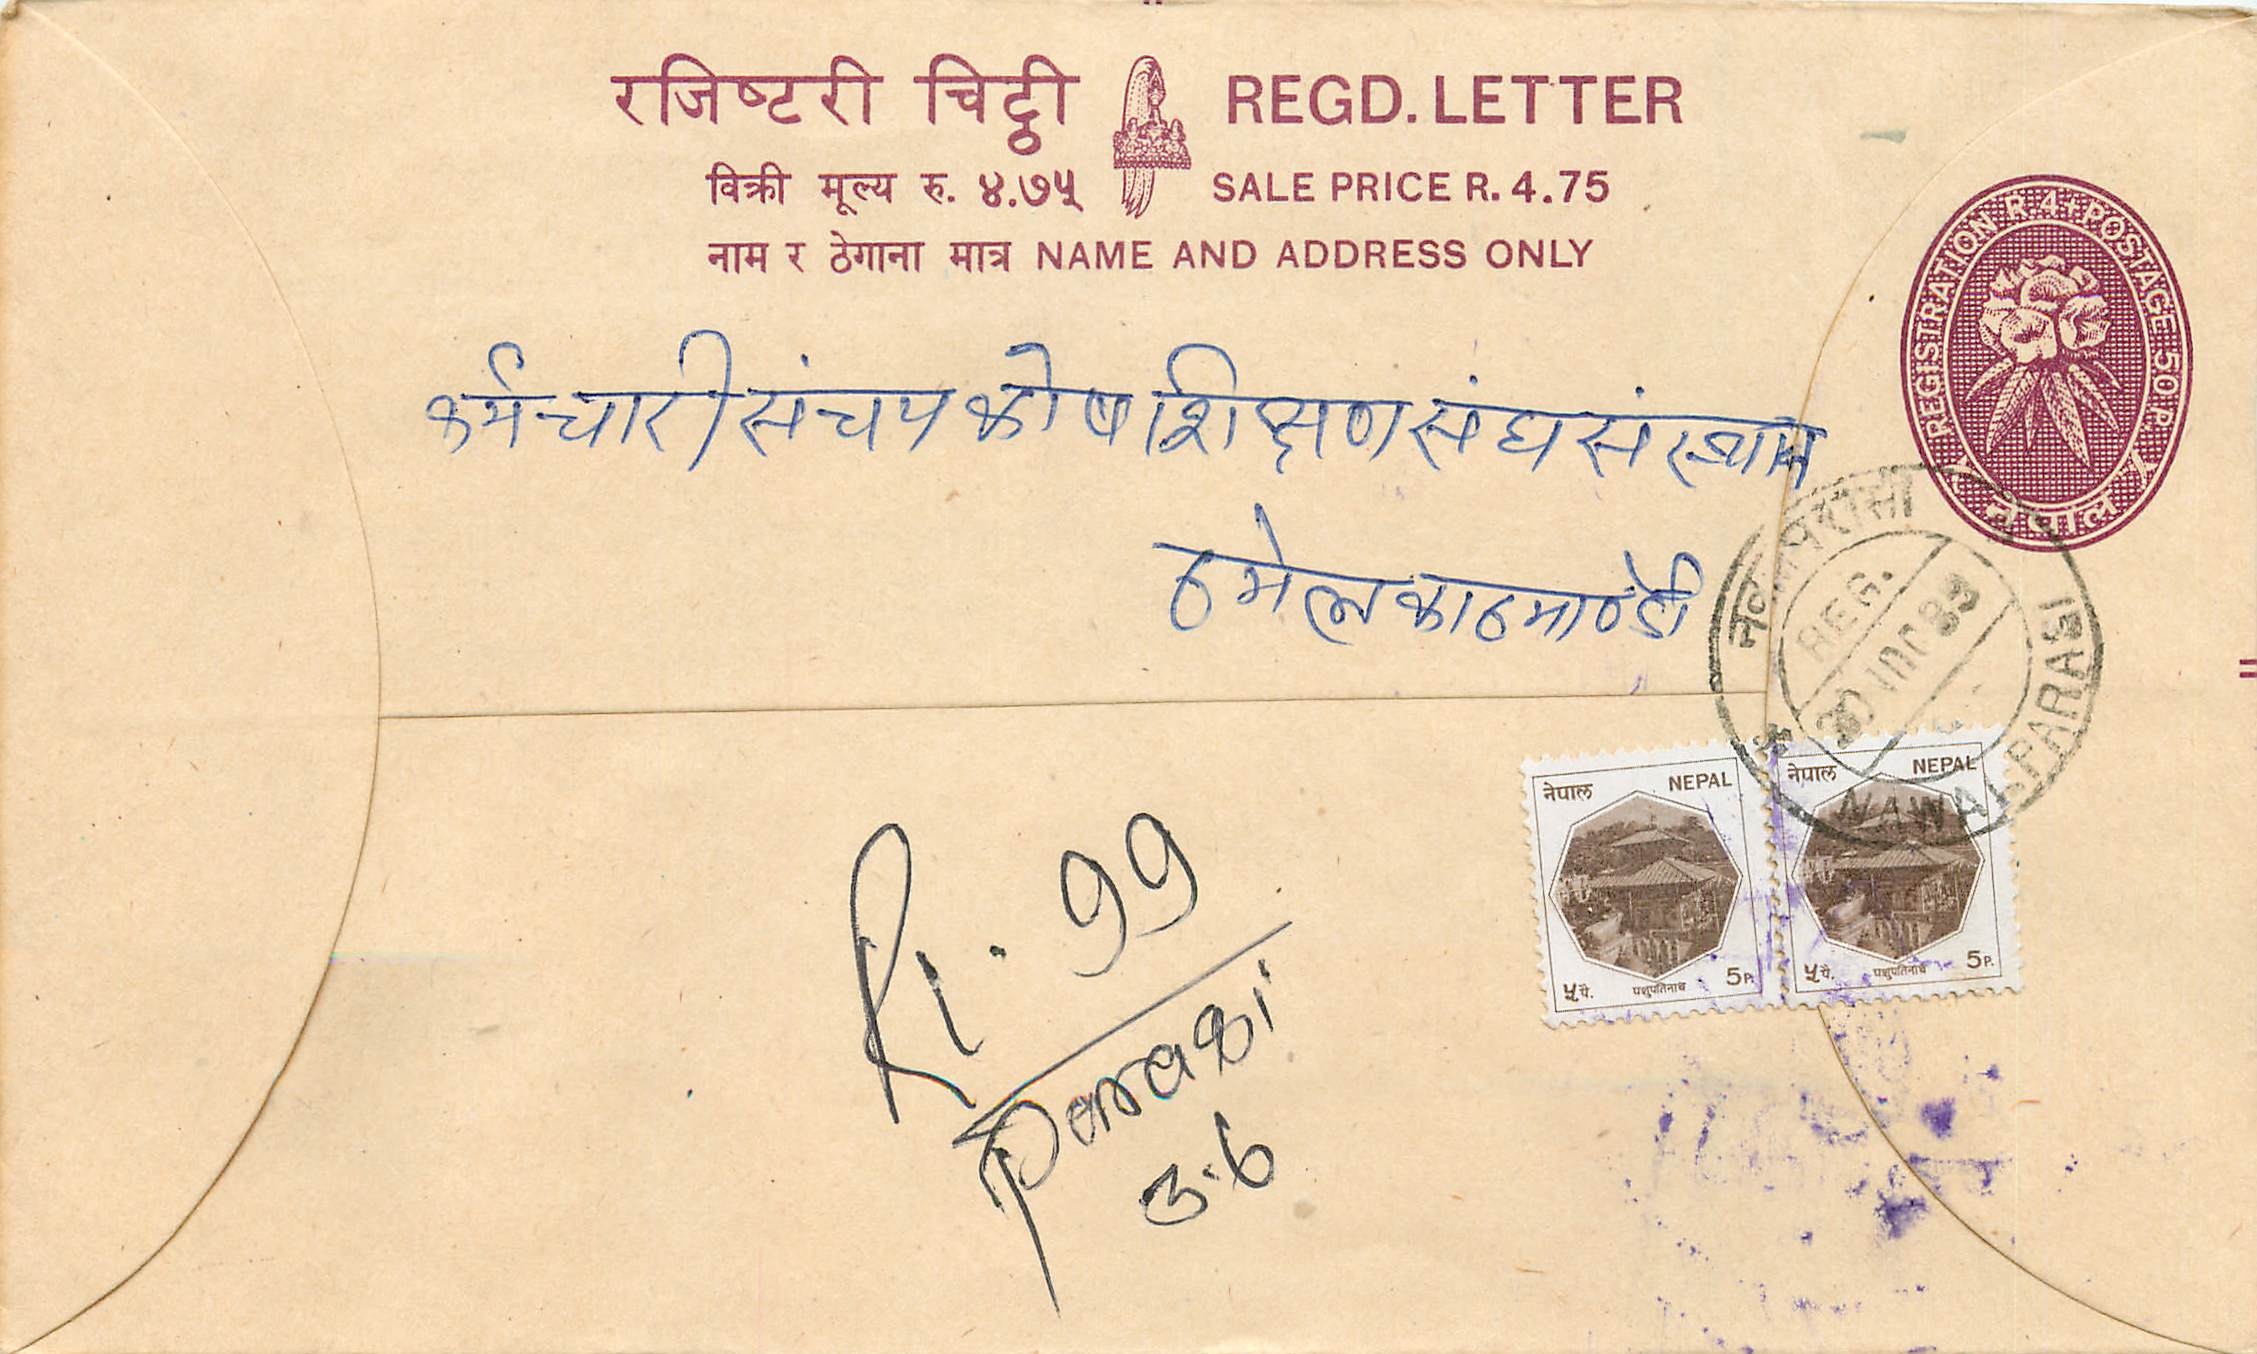 रजिष्टरी चिट्ठी REGD. LETTER
विक्री मूल्य रु. ४.७५ SALE PRICE R. 4.75
नाम र ठेगाना मात्र NAME AND ADDRESS ONLY
REGISTRATION R.4+POSTAGE 50 P.
नेपाल
कर्मचारी संचय कोष शिक्षण संघ संस्थान
ठमेल काठमाण्डौ
नवलपरासी
REG.
NAWALPARASI
नेपाल NEPAL
५ पै. पशुपतिनाथ 5 P.
नेपाल NEPAL
५ पै. पशुपतिनाथ 5 P.
Ri. 99
Parasi
3.6